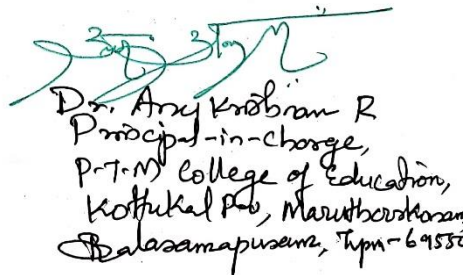 Dr. Anoj Krishnan R
Principal-in-charge,
P.T.M College of Education,
Kottukal P.O, Maruthoorkonam,
Balaramapuram, Tvpm-69550